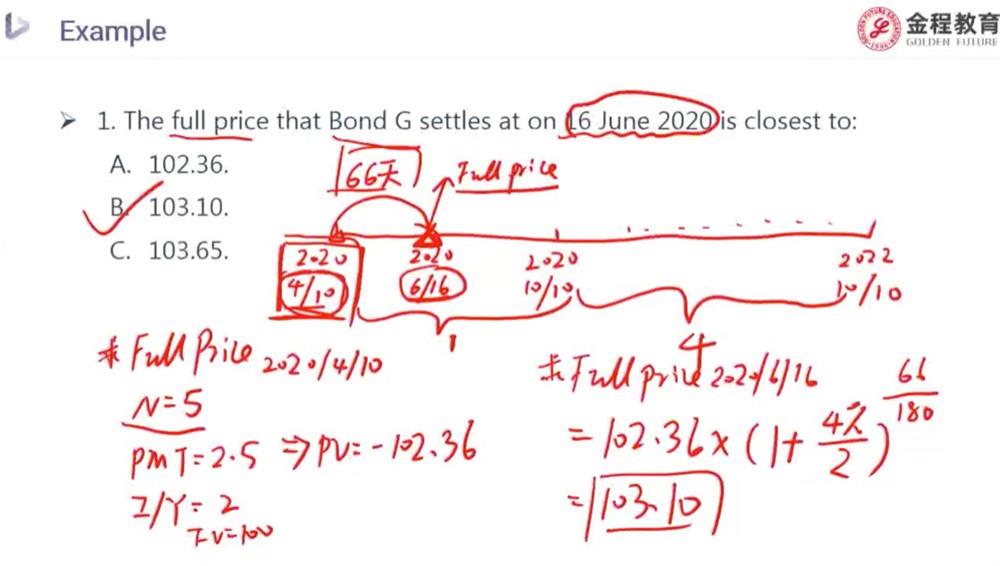 Example
金程教育
GOLDEN FUTURE
➤ 1. The full price that Bond G settles at on 16 June 2020 is closest to:
A. 102.36.
B. 103.10.
C. 103.65.
66天
Full price
2020 2020 2020 2022
4/10 6/16 10/10 10/10
1 4
* Full Price 2020/4/10
N=5
PMT=2.5 ⇒ PV=-102.36
I/Y=2
FV=100
* Full price 2020/6/16
= 102.36 × (1+ 4%/2)^66/180
= 103.10